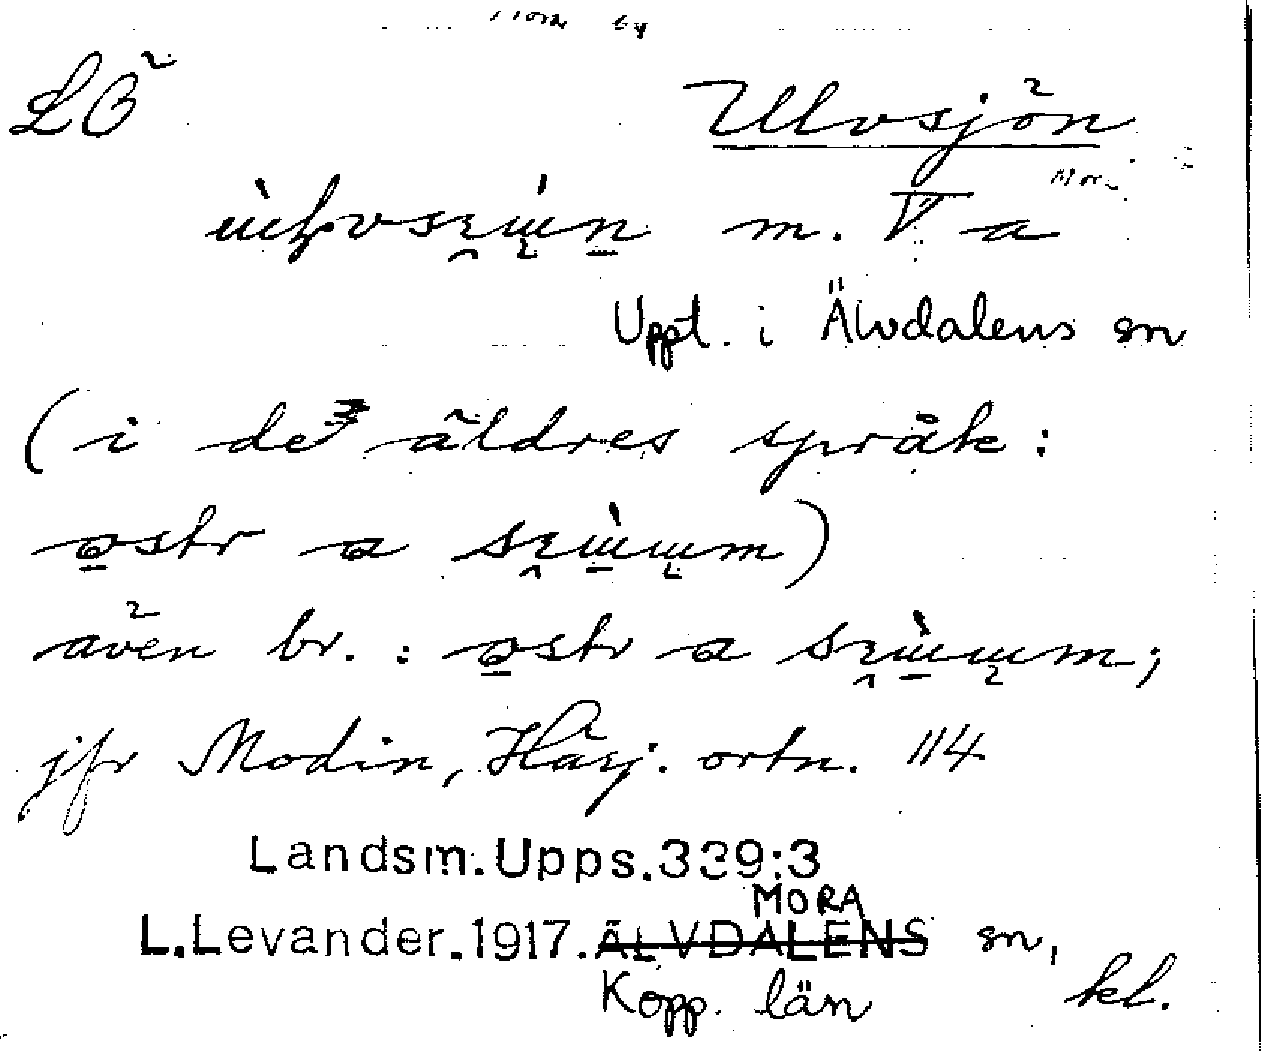 LB
Ulvsjön
m. V a
Uppt. i Älvdalens sn
(i de äldres språk:
ostr a)
även br. : ostr a
jfr Modin, Härj. ortn. 114
Landsm.Upps.339:3
MORA
L.Levander.1917. ÄLVDALENS sn,
Kopp. län kl.